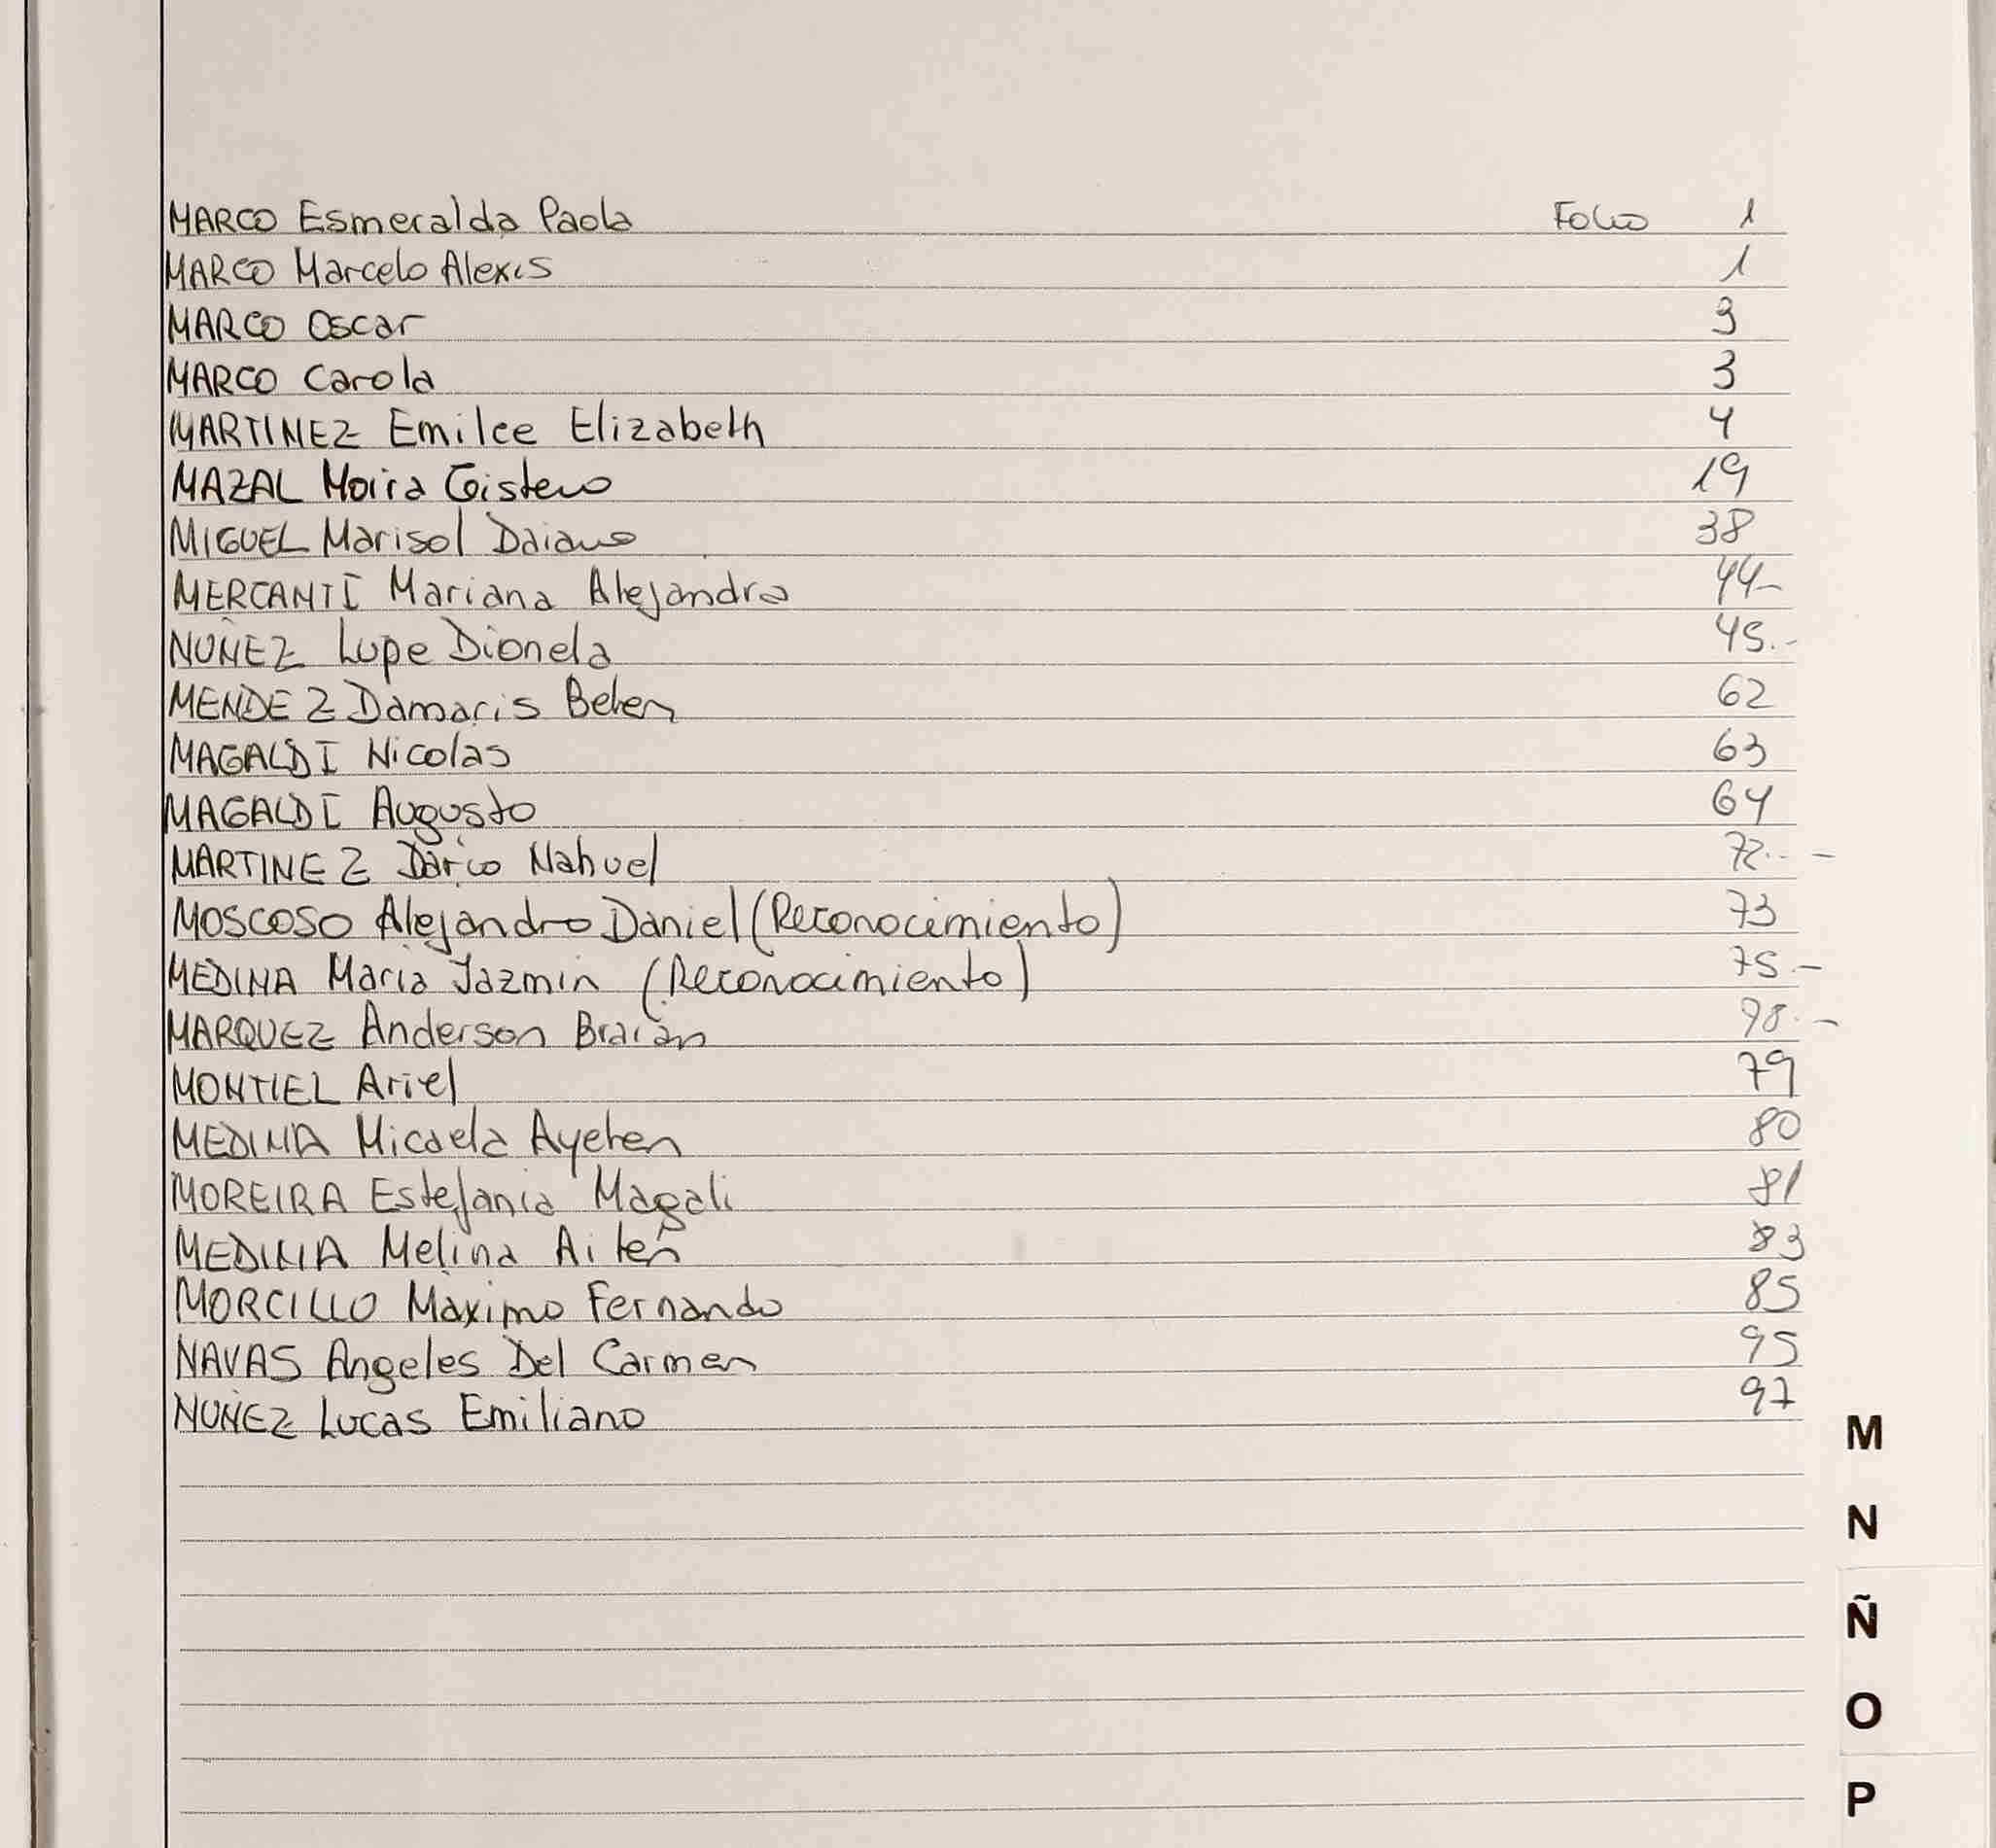 MARCO Esmeralda Paola Folio 1
MARCO Marcelo Alexis 1
MARCO Oscar 3
MARCO Carola 3
MARTINEZ Emilce Elizabeth 4
MAZAL Moira Gisteno 19
MIGUEL Marisol Daiana 38
MERCANTI Mariana Alejandra 44-
NUÑEZ Lupe Dionela 45.-
MENDEZ Damaris Belen 62
MAGALDI Nicolas 63
MAGALDI Augusto 64
MARTINEZ Dario Nahuel 72.. -
MOSCOSO Alejandro Daniel (Reconocimiento) 73
MEDINA Maria Jazmin (Reconocimiento) 75.-
MARQUEZ Anderson Braian 98.-
MONTIEL Ariel 79
MEDINA Micaela Ayelen 80
MOREIRA Estefania Magali 81
MEDINA Melina Ailen 83
MORCILLO Maximo Fernando 85
NAVAS Angeles Del Carmen 95
NUÑEZ Lucas Emiliano 97
M
N
Ñ
O
P